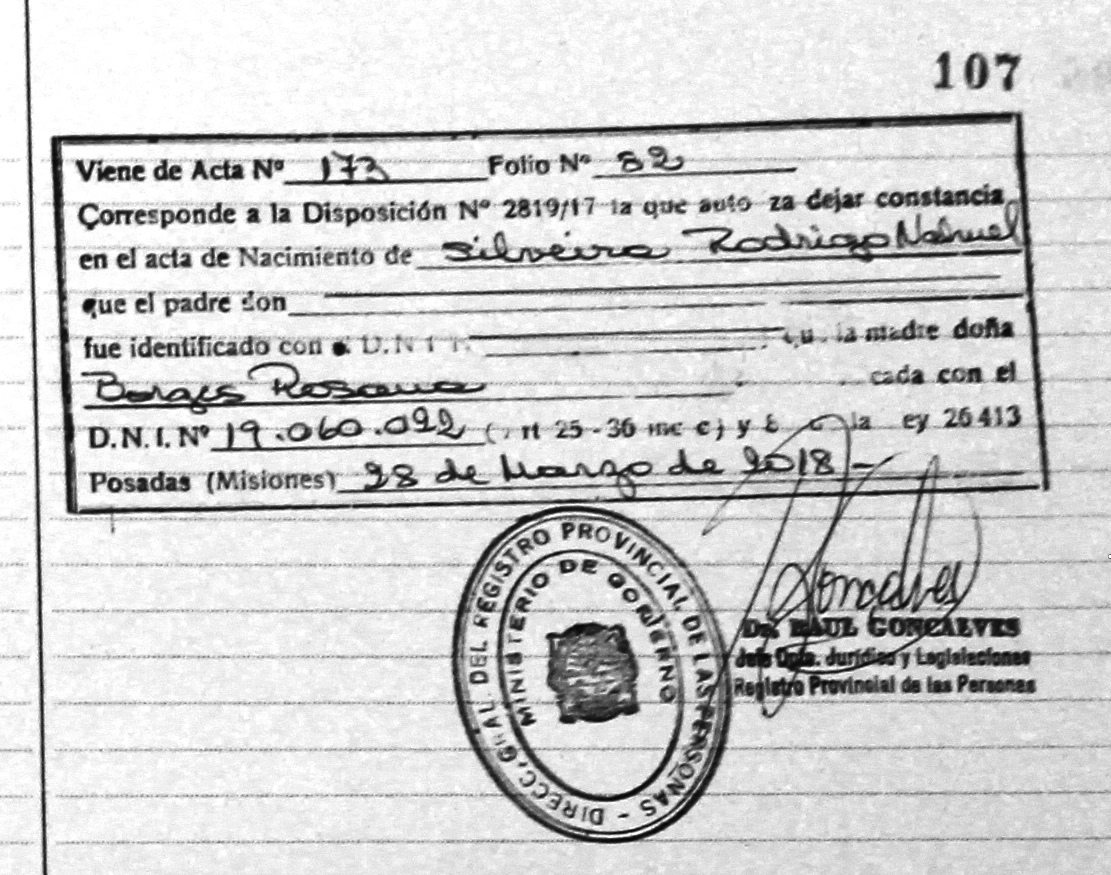 107
Viene de Acta Nº 173 Folio Nº 82
Corresponde a la Disposición Nº 2819/17 la que auto za dejar constancia
en el acta de Nacimiento de Silveira Rodrigo Nahuel
que el padre don
fue identificado con D.N.I. la madre doña
Borges Rosana cada con el
D.N.I. Nº 19.060.092 rt 25 - 36 inc c) y la ey 26 413
Posadas (Misiones) 28 de Marzo de 2018 -
DIRECC. GRAL. DEL REGISTRO PROVINCIAL DE LAS PERSONAS -
MINISTERIO DE GOBIERNO
Goncalves
Dr. RAUL GONCALVES
Jefe Dpto. Jurídico y Legislaciones
Registro Provincial de las Personas